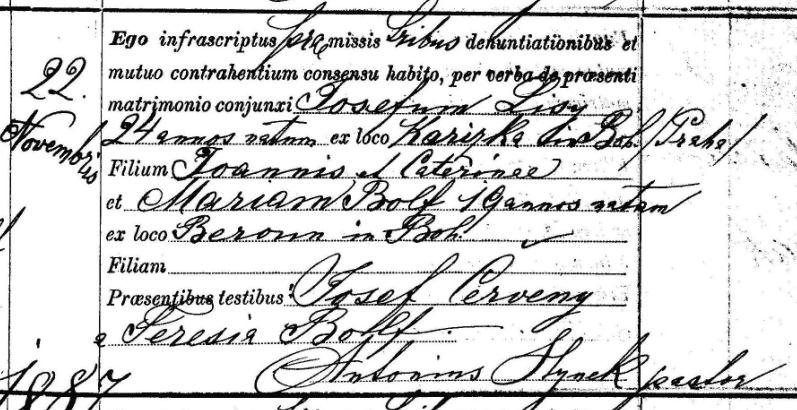 Ego infrascriptus præmissis tribus denuntiationibus et
22. mutuo contrahentium consensu habito, per verba de præsenti
matrimonio conjunxi Josefum Lisy
Novembris 24 annos natum ex loco Karizka in Boh. (Praha)
Filium Joannis et Caterinae
et Mariam Bolf 19 annos natam
ex loco Beroun in Boh.
Filiam
Præsentibus testibus: Josef Cerveny
e Teresia Bolf
Antonius Hynek pastor
1887